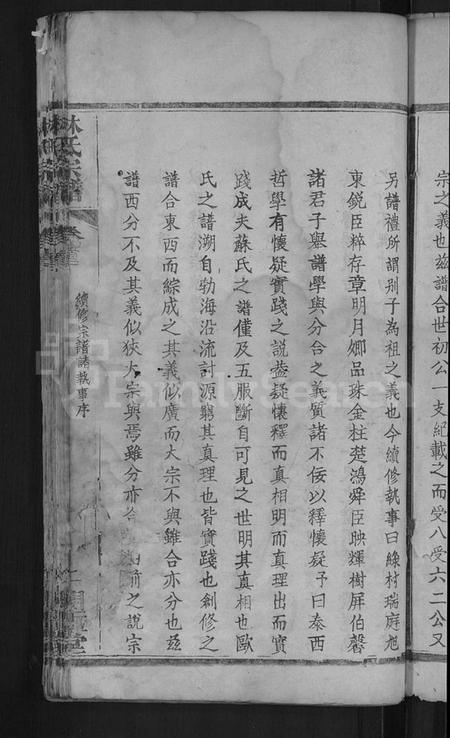 宗之義也茲譜合世初公一支紀載之而受八受六二公又
另譜禮所謂别子為祖之義也今續修執事曰綠村瑞庭旭
東銳臣粹存章明月卿品珠金柱楚鴻舜臣映輝樹屏伯馨
諸君子舉譜學與分合之義質諸不佞以釋懷疑予曰泰西
哲學有懷疑實踐之說葢疑懷釋而真相明而真理出而實
踐成夫蘇氏之譜僅及五服斷自可見之世明其真相也歐
氏之譜溯自勃海沿流討源窮其真理也皆實踐也創修之
譜合東西而綜成之其義似廣而大宗不與雖合亦分也茲
譜西分不及其義似狹大宗與焉雖分亦合 前之說宗
林氏宗譜
卷壹
續修宗譜諸執事序
二
FamilySearch